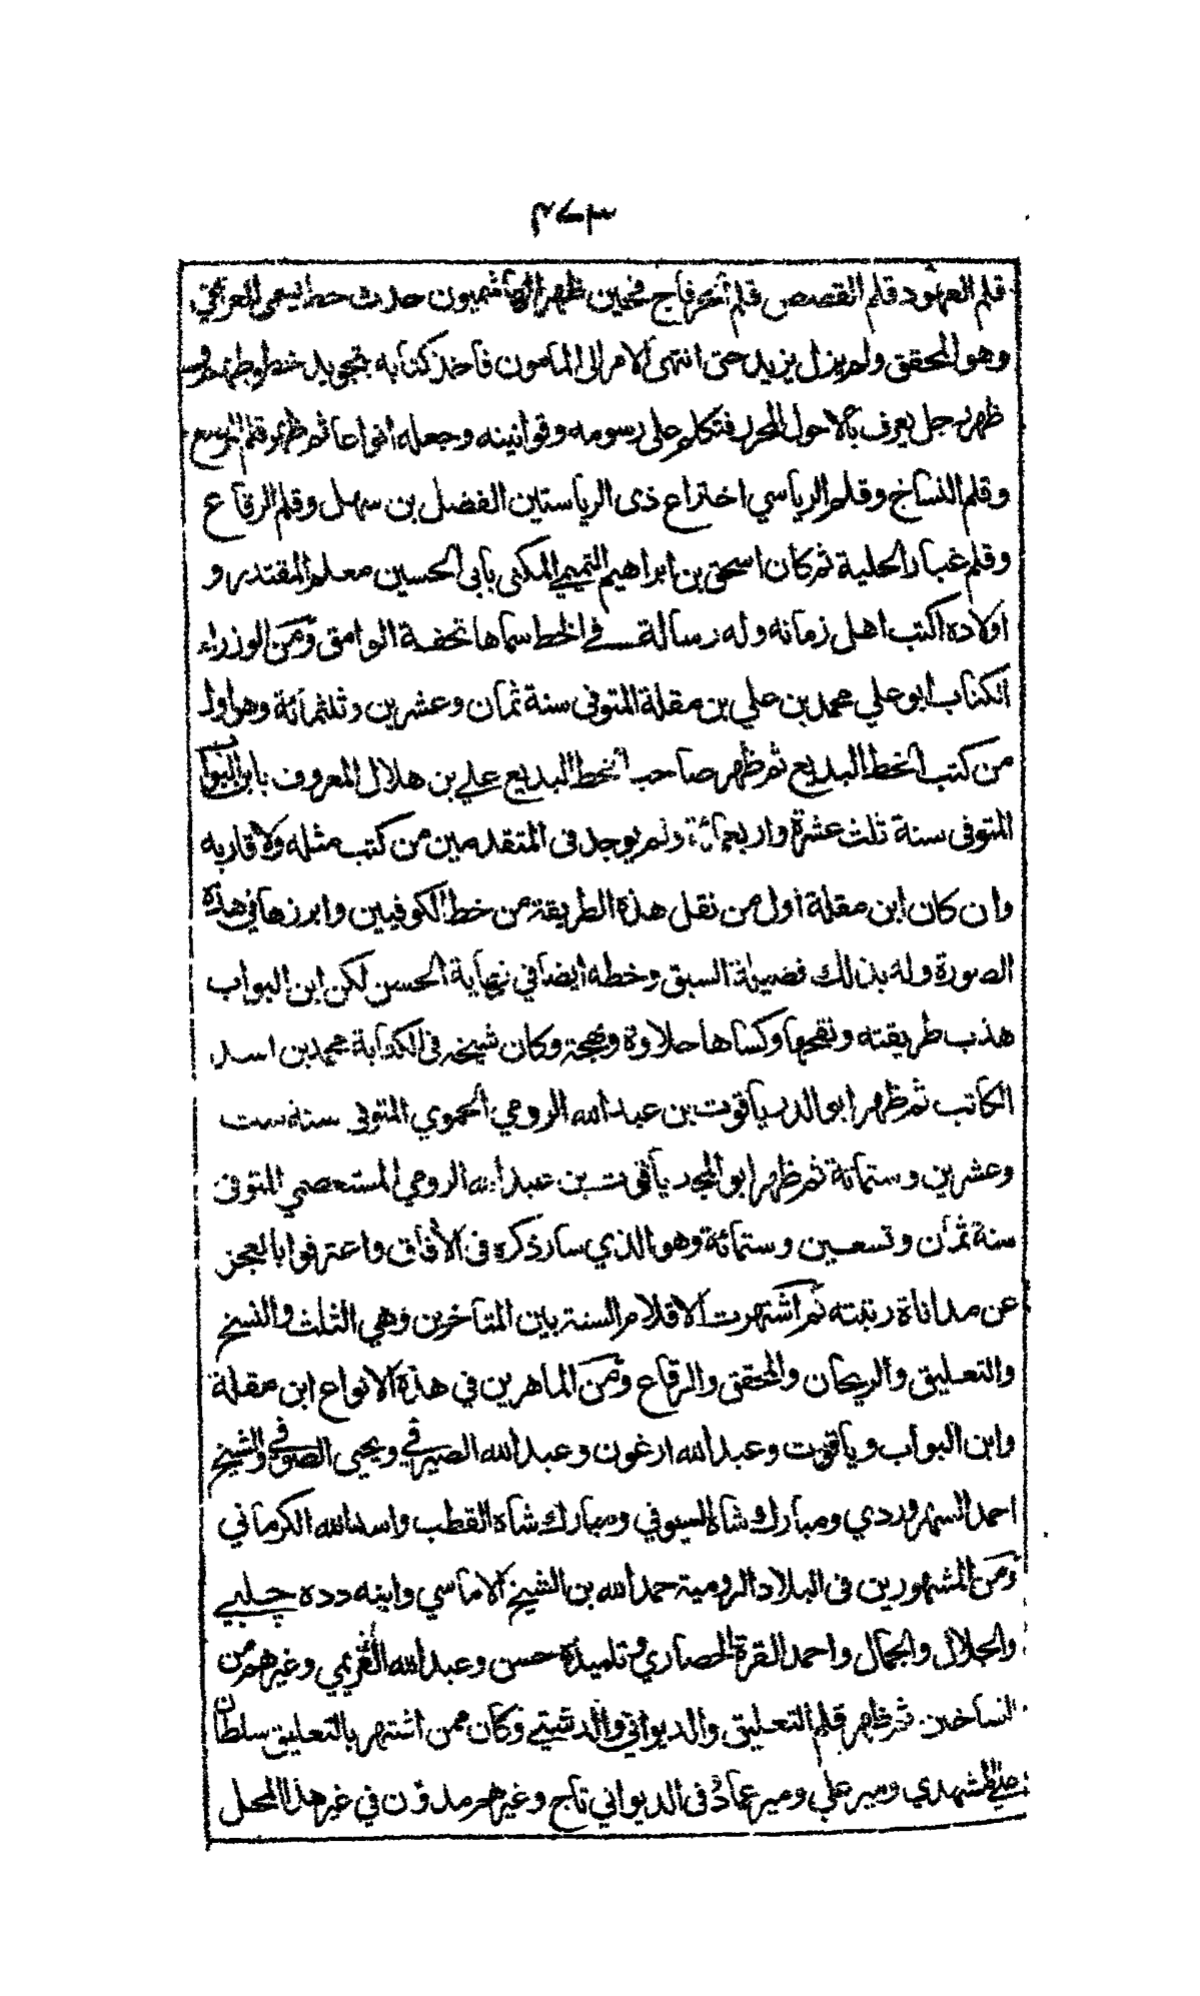 ٣٧٣
قلم العهود قلم القصص قلم الخرفاج فحين ظهر الهاشميون حدث خط يسمى العراقي
وهو المحقق ولم يزل يزيد حتى انتهى الامر الى المأمون فاخذ كتابه بتجويد خطوطهم
ظهر رجل يعرف بالاحول المحرر فتكلم على رسومه وقوانينه وجعله انواعا ثم ظهر قلم المرصع
وقلم النساخ وقلم الرياسي اختراع ذى الرياستين الفضل بن سهل وقلم الرقاع
وقلم غبار الحلية ثم كان اسحق بن ابراهيم التميمي المكنى بابى الحسين معلم المقتدر و
اولاده اكتب اهل زمانه وله رسالة في الخط سماها تحفة الوامق ومن الوزراء
الكتاب ابو علي محمد بن علي بن مقلة المتوفى سنة ثمان وعشرين وثلثمائة وهو اول
من كتب الخط البديع ثم ظهر صاحب الخط البديع علي بن هلال المعروف بابن البواب
المتوفى سنة ثلث عشرة واربعمائة ولم يوجد فى المتقدمين من كتب مثله ولا قاربه
وان كان ابن مقلة اول من نقل هذه الطريقة من خط الكوفيين وابرزها في هذه
الصورة وله بذلك فضيلة السبق وخطه ايضا في نهاية الحسن لكن ابن البواب
هذب طريقته ونقحها وكساها حلاوة وبهجة وكان شيخه فى الكتابة محمد بن اسد
الكاتب ثم ظهر ابو الدر ياقوت بن عبد الله الرومي الحموي المتوفى سنة ست
وعشرين وستمائة ثم ظهر ابو المجد ياقوت بن عبد الله الرومي المستعصمي المتوفى
سنة ثمان وتسعين وستمائة وهو الذي سار ذكره فى الآفاق واعترفوا بالعجز
عن مداناة رتبته ثم اشتهرت الاقلام الستة بين المتاخرين وهي الثلث والنسخ
والتعليق والريحان والمحقق والرقاع ومن الماهرين في هذه الانواع ابن مقلة
وابن البواب وياقوت وعبد الله ارغون وعبد الله الصيرفي ويحيى الصوفي والشيخ
احمد السهروردي ومبارك شاه السيوفي ومبارك شاه القطب واسد الله الكرماني
ومن المشهورين فى البلاد الرومية حمد الله بن الشيخ الاماسي وابنه دده چلبي
والجلال والجمال واحمد القرة الحصاري وتلميذه حسن وعبد الله القريمي وغيرهم من
النساخين ثم ظهر قلم التعليق والديواني والدشتي وكان ممن اشتهر بالتعليق سلطان
علي المشهدي ومير علي ومير عماد وفى الديواني تاج وغيرهم مدون في غير هذا المحل